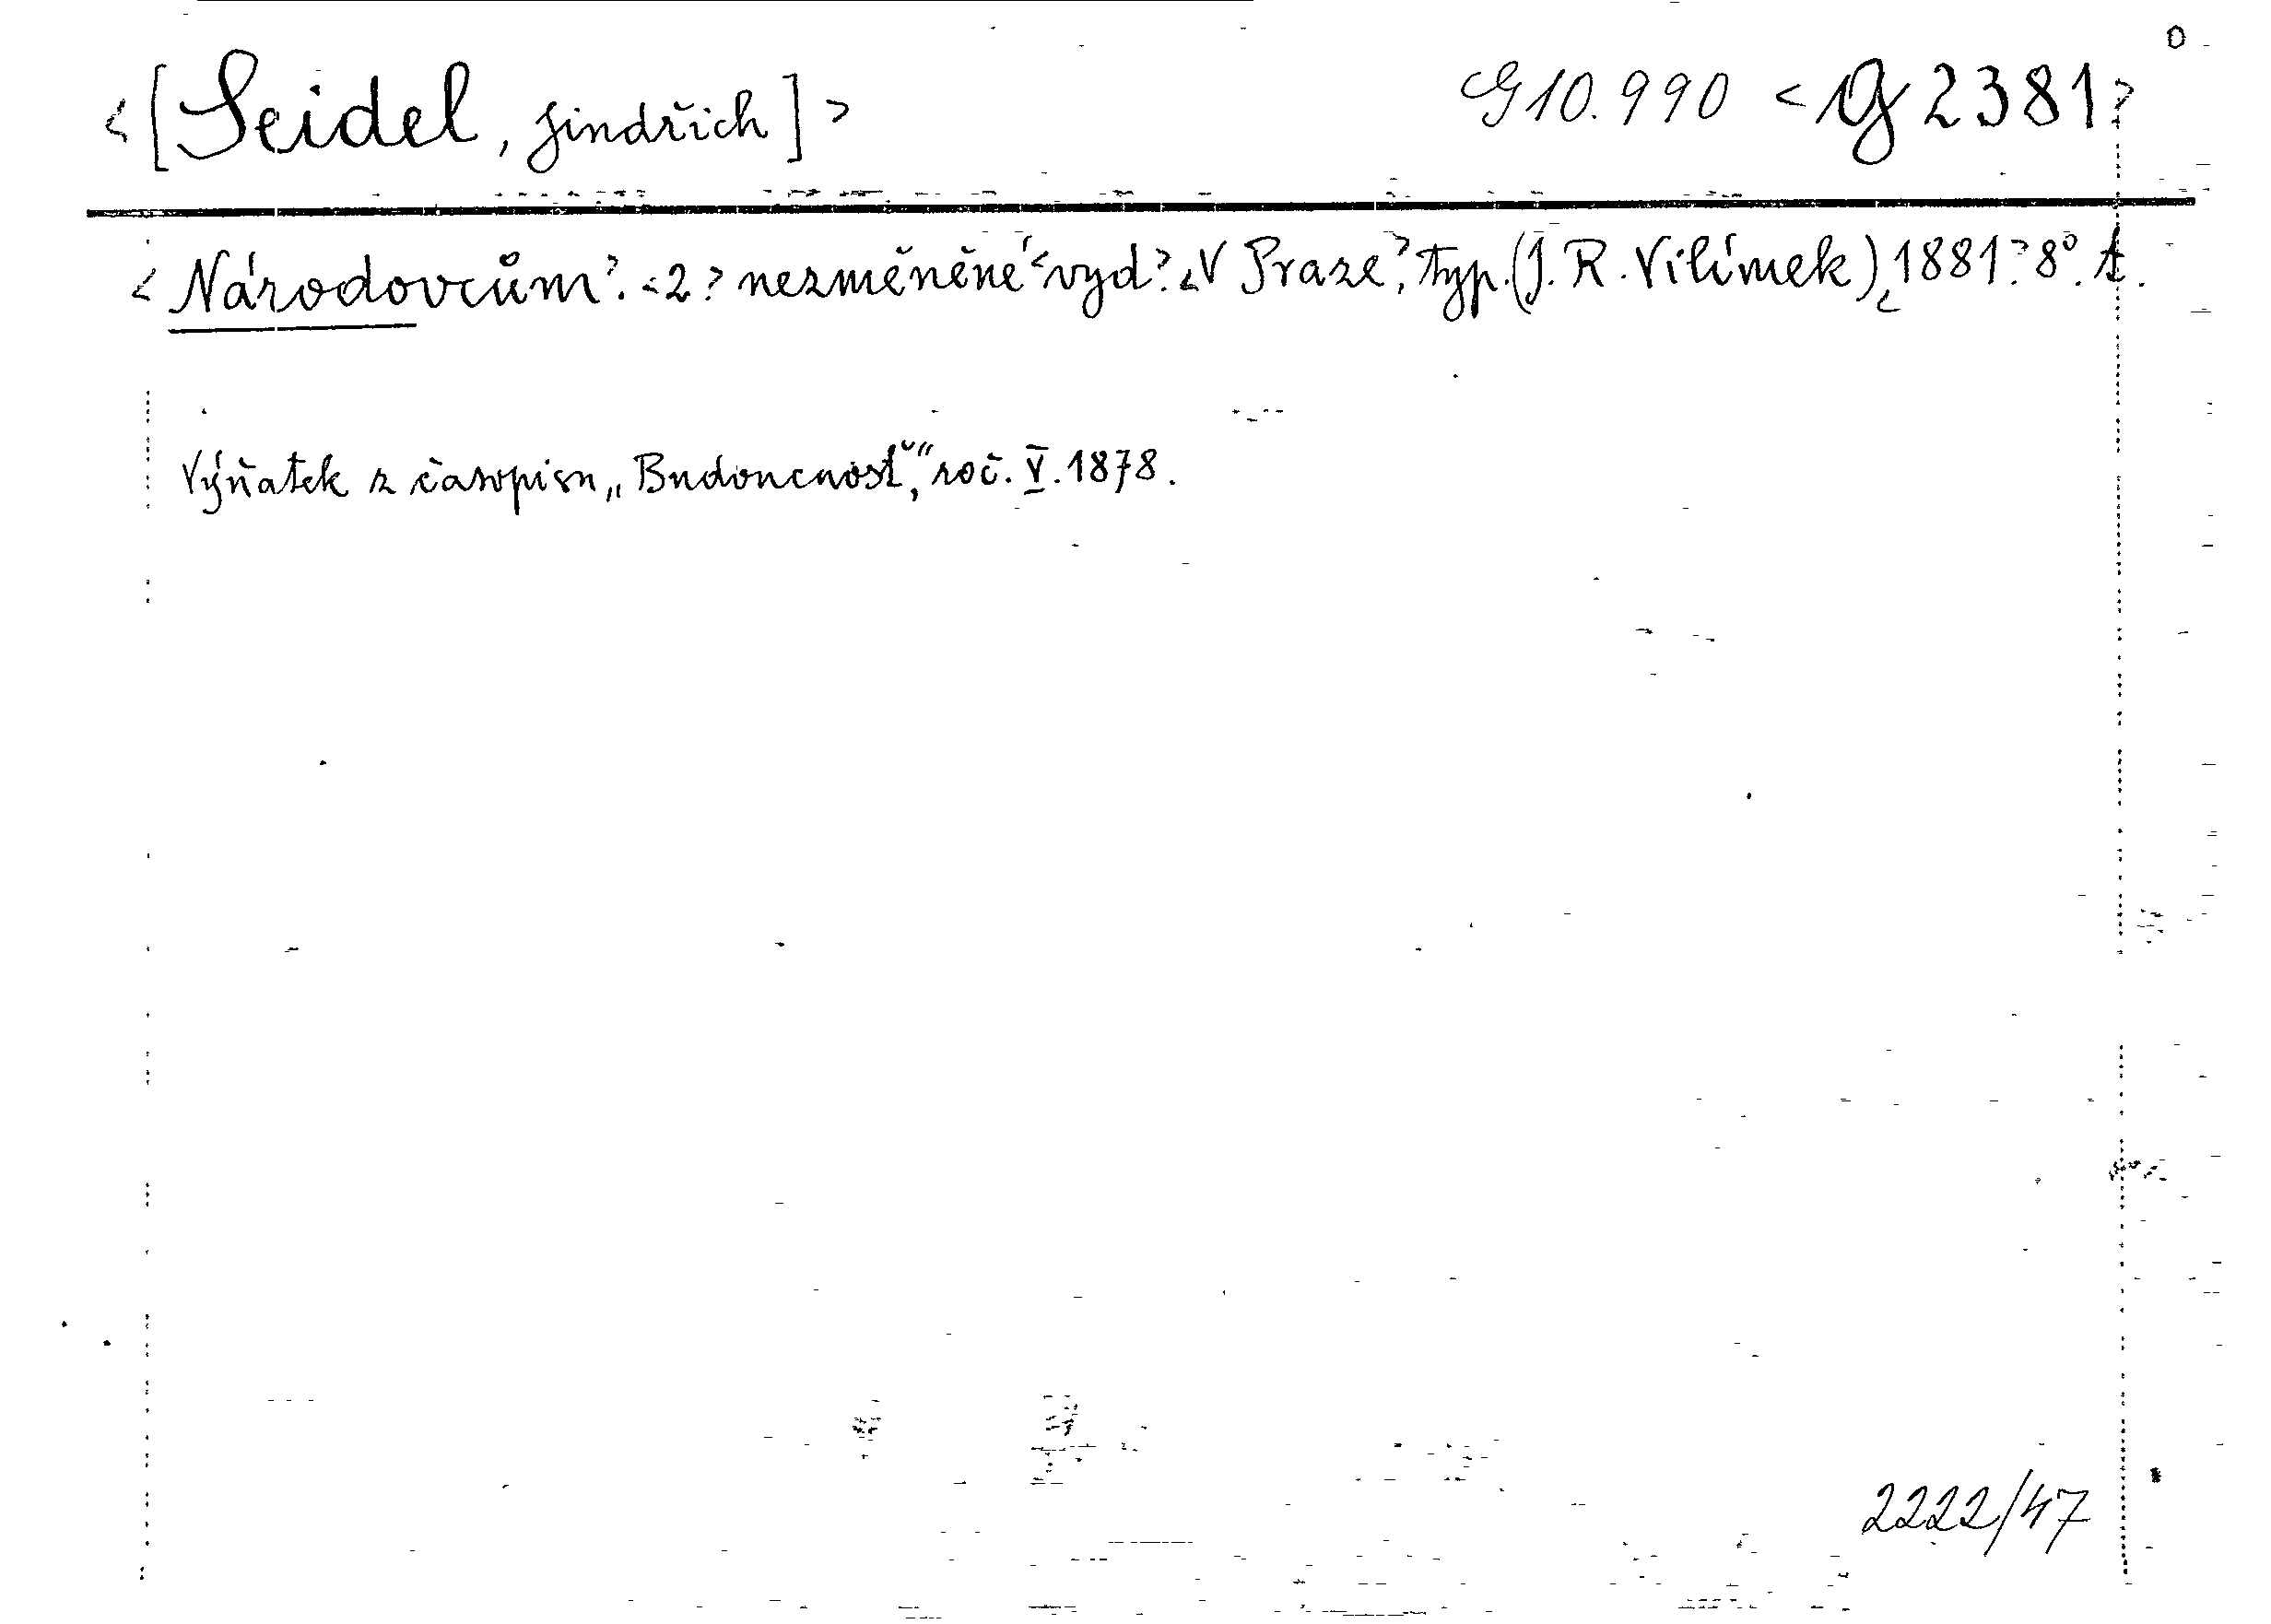 <[Seidel, Jindřich]> G10.990 <G 2381>
<Národovcům>. <2> nezměněné <vyd>. <V Praze>, typ. (J. R. Vilímek), <1881>. 8°. t.
Výňatek z časopisu „Budoucnosť“, roč. V. 1878.
2222/47